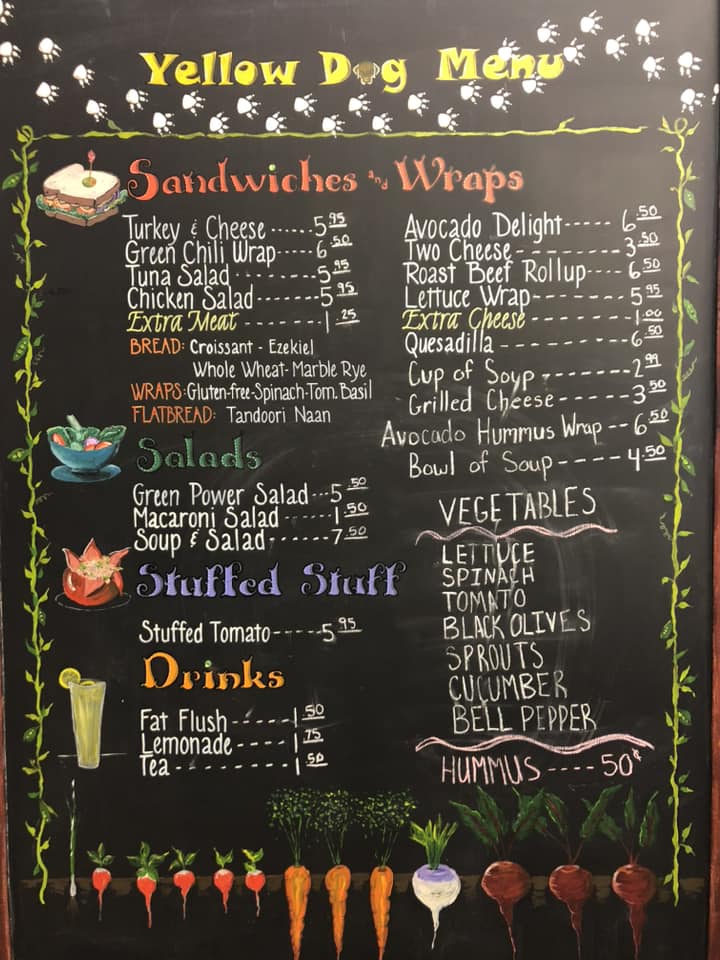 Yellow Dog Menu
Sandwiches and Wraps
Turkey & Cheese ------ 5.95
Green Chili Wrap---- 6.50
Tuna Salad -------- 5.95
Chicken Salad ------- 5.95
Extra Meat -------- 1.25
BREAD: Croissant - Ezekiel
Whole Wheat - Marble Rye
WRAPS: Gluten-free-Spinach-Tom. Basil
FLATBREAD: Tandoori Naan
Avocado Delight ----- 6.50
Two Cheese -------- 3.50
Roast Beef Rollup---- 6.50
Lettuce Wrap-------- 5.95
Extra Cheese -------- 1.00
Quesadilla --------- 6.50
Cup of Soyp ------- 2.99
Grilled Cheese ----- 3.50
Avocado Hummus Wrap -- 6.50
Bowl of Soup ----- 4.50
Salads
Green Power Salad--- 5.50
Macaroni Salad ----- 1.50
Soup & Salad------ 7.50
Stuffed Stuff
Stuffed Tomato----- 5.95
Drinks
Fat Flush ------ 1.50
Lemonade ---- 1.75
Tea -------- 1.50
VEGETABLES
LETTUCE
SPINACH
TOMATO
BLACK OLIVES
SPROUTS
CUCUMBER
BELL PEPPER
HUMMUS ---- 50¢